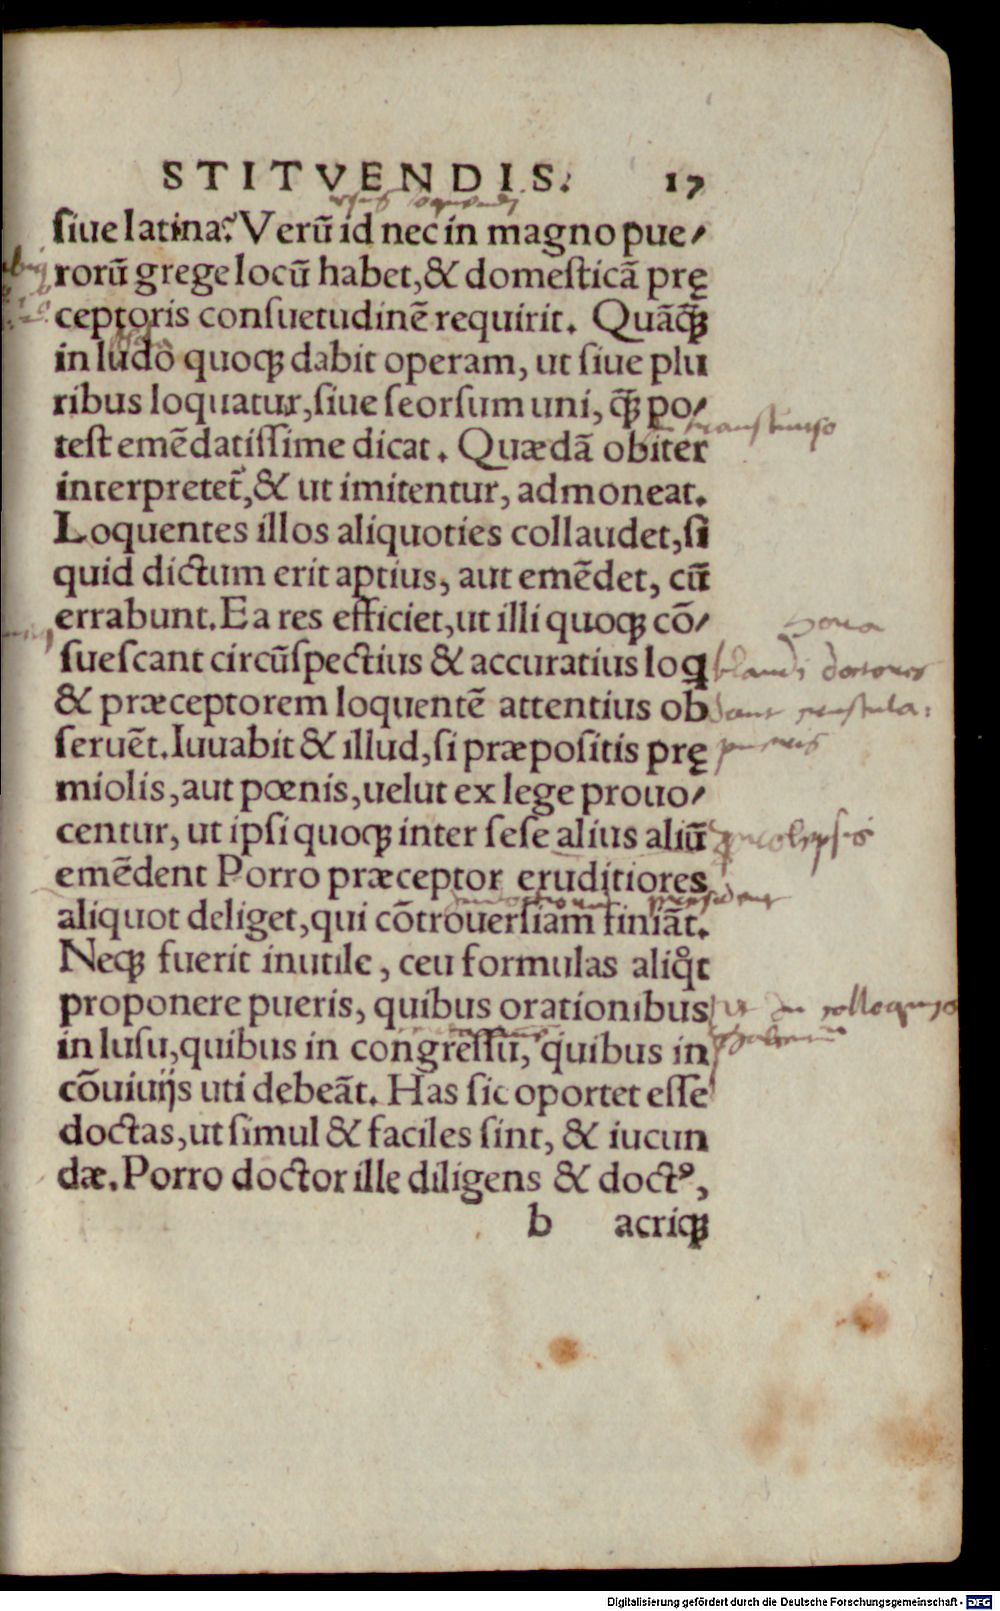 STITVENDIS. 17
ſiue latina? Verũ id nec in magno pue⸗
rorũ grege locũ habet, & domeſticã prę
ceptoris conſuetudinẽ requirit. Quãꝗ̃ꝫ
in ludo quoqꝫ dabit operam, ut ſiue plu
ribus loquatur, ſiue ſeorſum uni, ꝗ̃ꝫ po⸗
teſt emẽdatiſſime dicat. Quædã obiter
interpretet᷑, & ut imitentur, admoneat.
Loquentes illos aliquoties collaudet, ſi
quid dictum erit aptius, aut emẽdet, cũ
errabunt. Ea res efficiet, ut illi quoqꝫ cõ⸗
sueſcant circũſpectius & accuratius loꝗ
& præceptorem loquentẽ attentius ob
ſeruẽt. Iuuabit & illud, ſi præpoſitis prę
miolis, aut pœnis, uelut ex lege prouo⸗
centur, ut ipſi quoqꝫ inter ſeſe alius aliũ
emẽdent Porro præceptor eruditiores
aliquot deliget, qui cõtrouerſiam finiãt.
Neqꝫ fuerit inutile, ceu formulas aliqͦt
proponere pueris, quibus orationibus
in luſu, quibus in congreſſu, quibus in
cõuiuijs uti debeãt. Has ſic oportet eſſe
doctas, ut ſimul & faciles ſint, & iucun
dæ. Porro doctor ille diligens & doctꝰ,
b acriqꝫ
blandi doctores
pueris
Digitalisierung gefördert durch die Deutsche Forschungsgemeinschaft - DFG